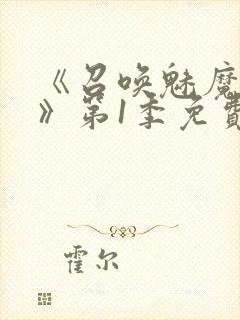 《召唤魅魔
》第1季免費
霍尔